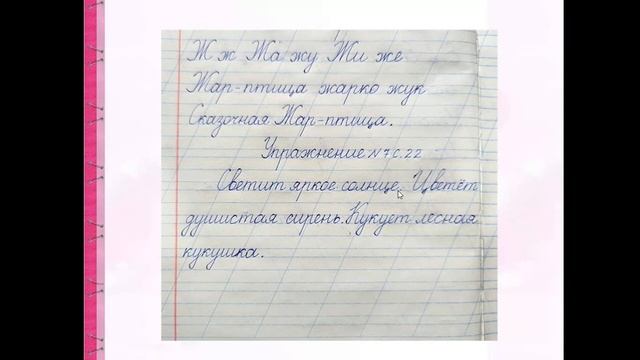 Ж ж Жа жу Жи же
Жар-птица жарко жук
Сказочная Жар-птица.
Упражнение №7 с.22
Светит яркое солнце. Цветёт
душистая сирень. Кукует лесная
кукушка.